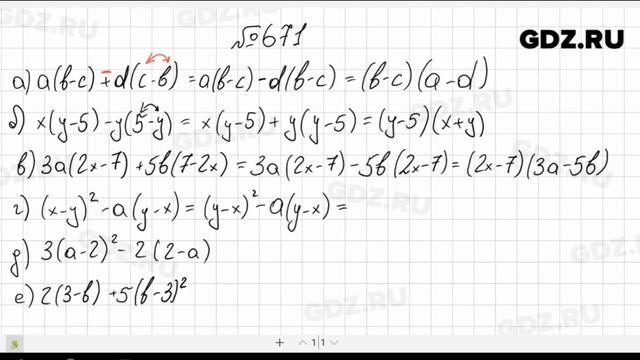 №671
GDZ.RU
а) a(b-c)+d(c-b) = a(b-c)-d(b-c) = (b-c)(a-d)
б) x(y-5)-y(5-y) = x(y-5)+y(y-5)=(y-5)(x+y)
в) 3a(2x-7)+5b(7-2x) = 3a(2x-7)-5b(2x-7)=(2x-7)(3a-5b)
г) (x-y)²-a(y-x) = (y-x)²-a(y-x)=
д) 3(a-2)²-2(2-a)
е) 2(3-b)+5(b-3)²
+ 1|1